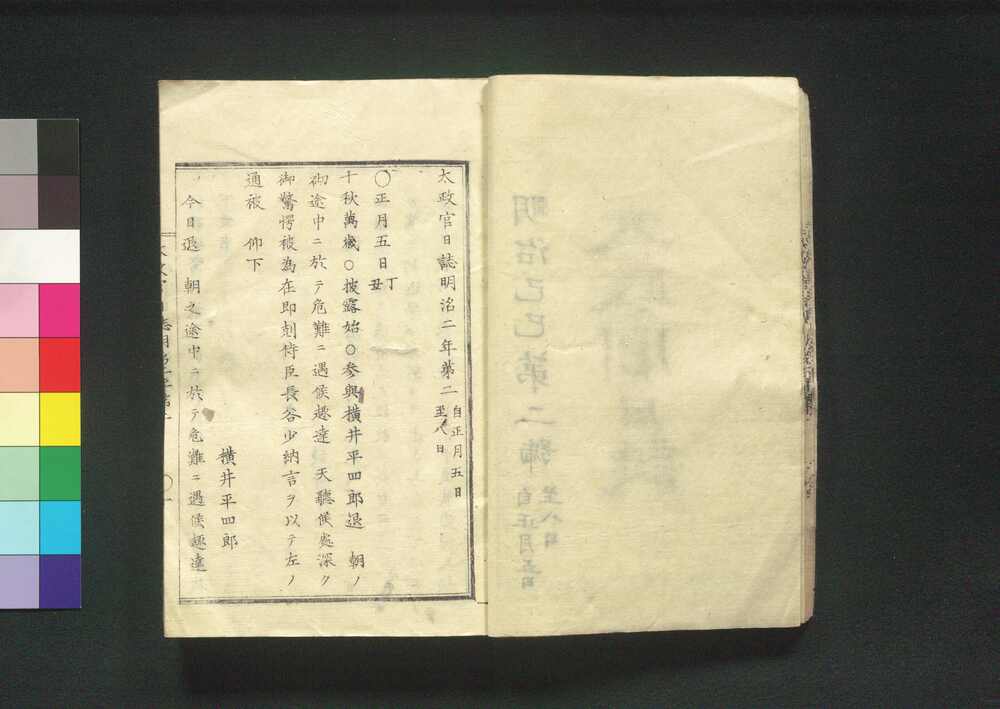 太政官日誌明治二年第二 自正月五日至八日
〇正月五日 丁丑
千秋萬歳〇披露始〇参與横井平四郎退 朝ノ
御途中ニ於テ危難ニ遇候趣達 天聽候處深ク
御驚愕被為在即刻侍臣長谷少納言ヲ以テ左ノ
通被 仰下
横井平四郎
今日退 朝之途中ニ於テ危難ニ遇候趣達